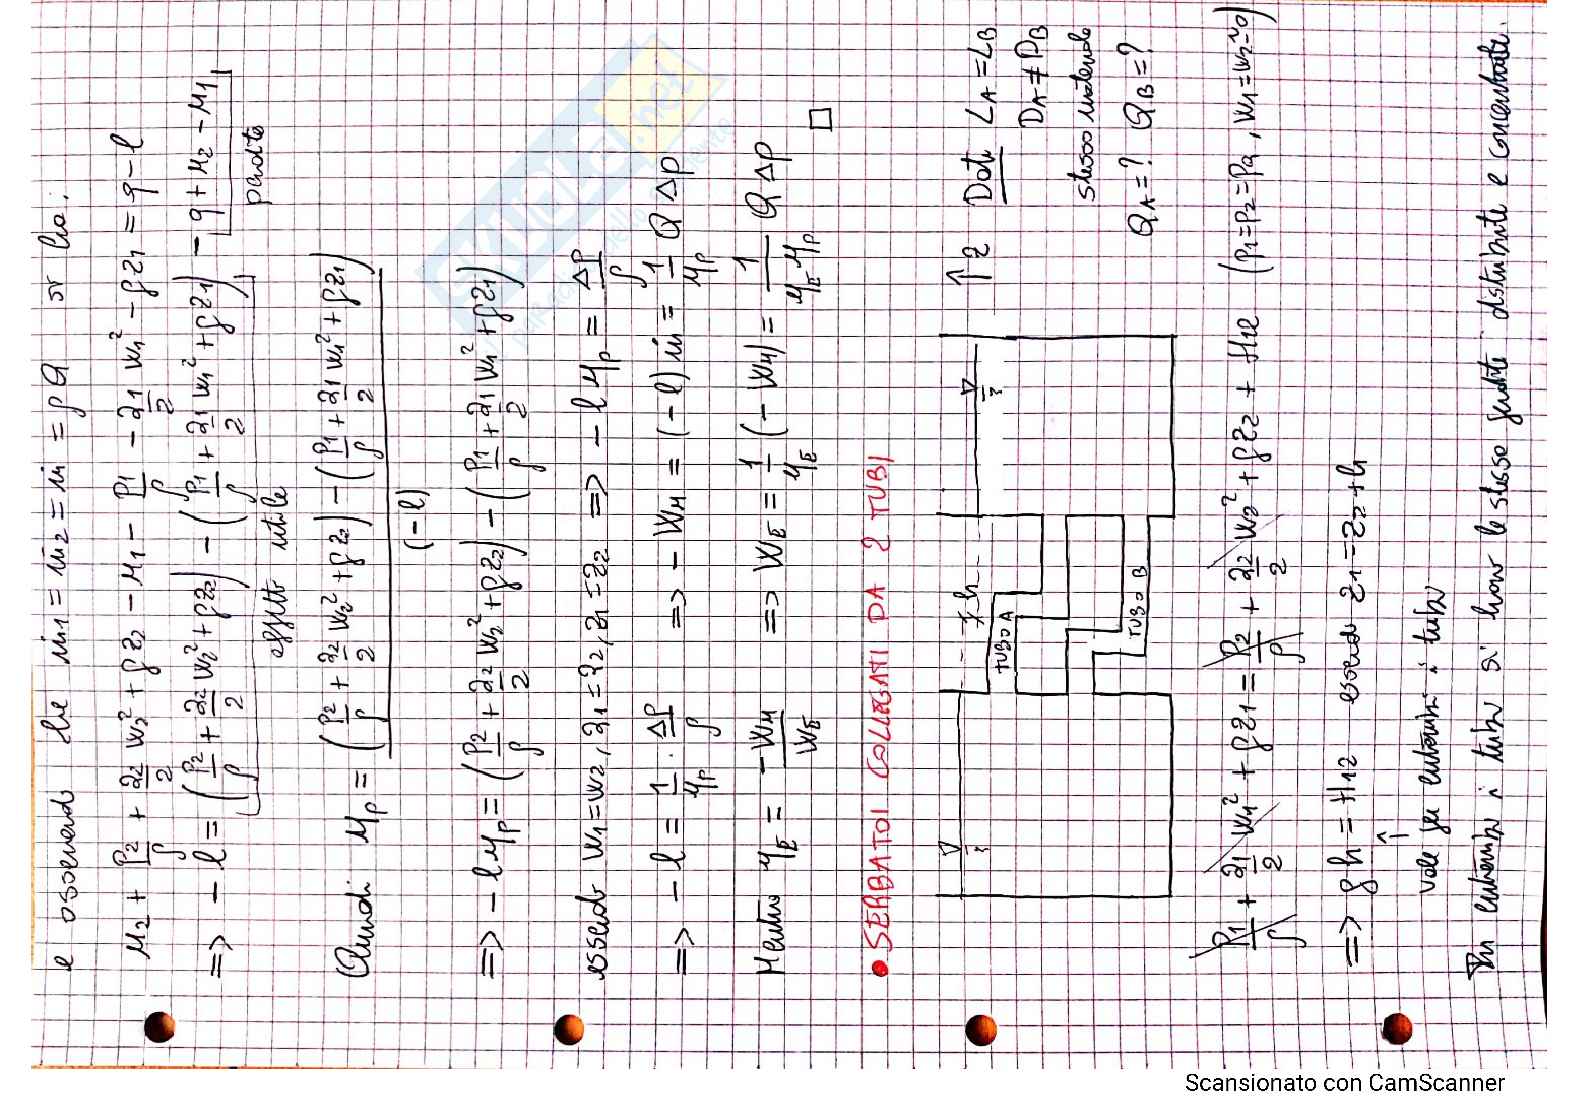 e essendo che ṁ1 = ṁ2 = ṁ = ρQ si ha:
u2 + p2/ρ + α2/2 w2² + gz2 - u1 - p1/ρ - α1/2 w1² - gz1 = q - l
=> - l = (p2/ρ + α2/2 w2² + gz2) - (p1/ρ + α1/2 w1² + gz1) - q + u2 - u1
effetto utile
perdite
Quindi ηp = (p2/ρ + α2/2 w2² + gz2) - (p1/ρ + α1/2 w1² + gz1)
(-l)
=> - l ηp = (p2/ρ + α2/2 w2² + gz2) - (p1/ρ + α1/2 w1² + gz1)
essendo w1 = w2, α1 = α2, z1 = z2 => - l ηp = Δp/ρ
=> - l = 1/ηp · Δp/ρ => - WM = (-l) ṁ = 1/ηp Q Δp
Mentre ηE = -WM/WE => WE = 1/ηE (-WM) = 1/(ηE ηp) Q Δp □
• SERBATOI COLLEGATI DA 2 TUBI
h
TUBO A
TUBO B
↑ z
Dati LA = LB
DA ≠ DB
stesso materiale
QA = ? QB = ?
p1/ρ + α1/2 w1² + gz1 = p2/ρ + α2/2 w2² + gz2 + H12 (p1 = p2 = pa, w1 = w2 ≃ 0)
=> gh = H12 essendo z1 = z2 + h
↑
vale per entrambi i tubi
In entrambi i tubi si hanno le stesse perdite distribuite e concentrate.
SKUOLA.net
Scansionato con CamScanner